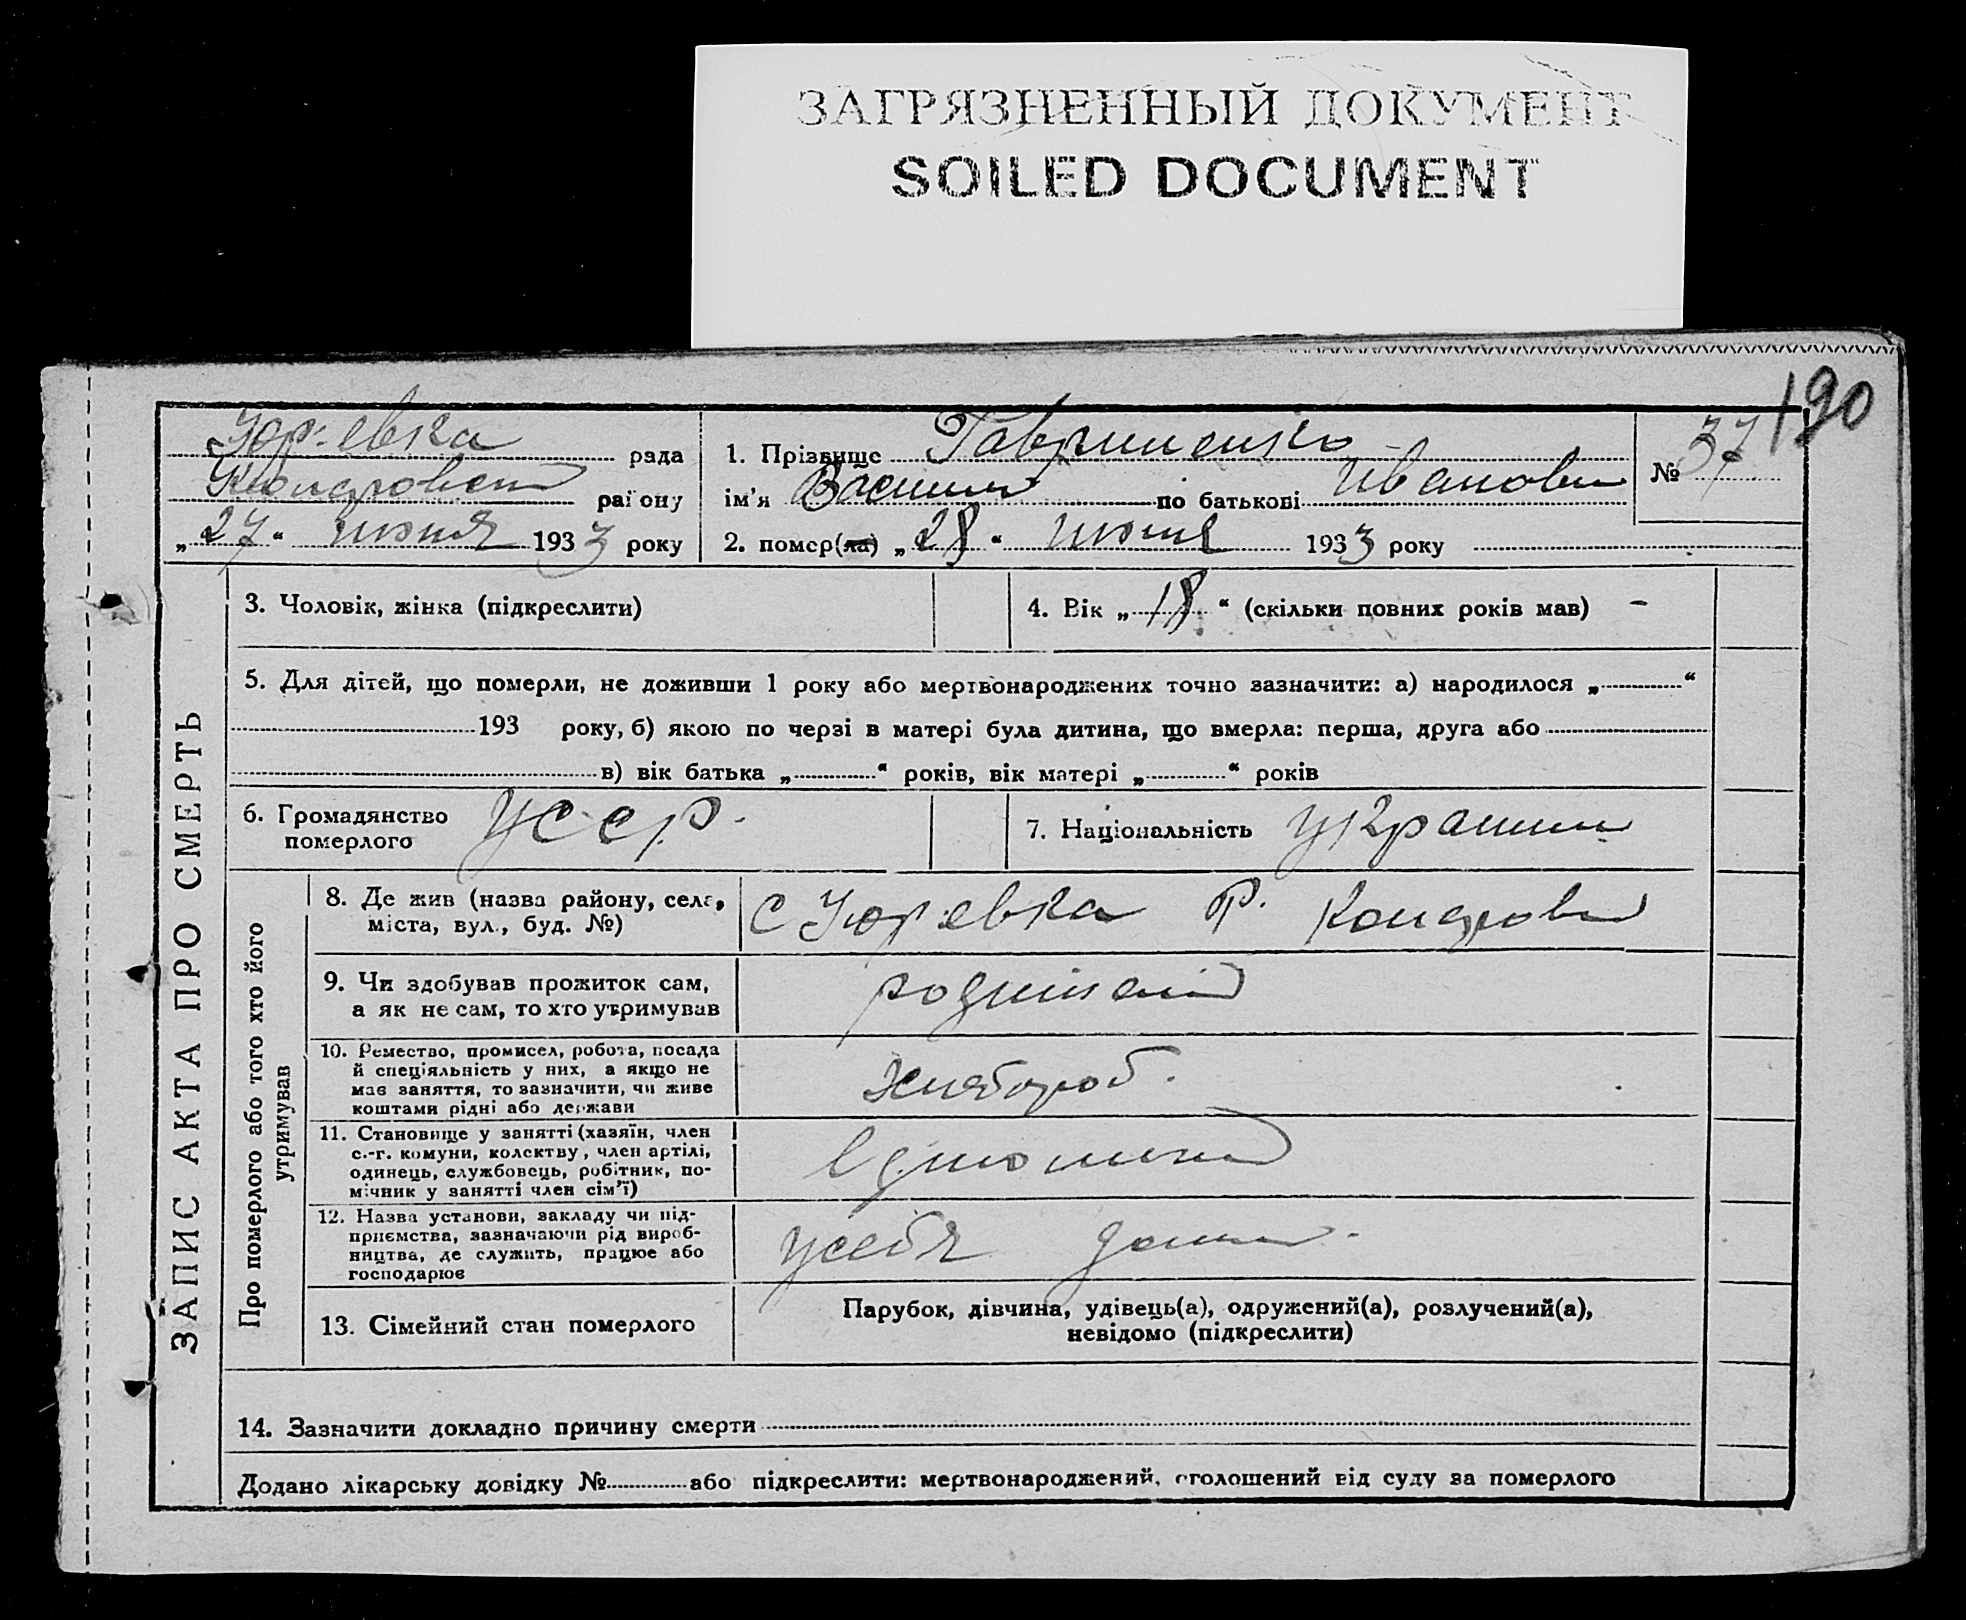 ЗАГРЯЗНЕННЫЙ ДОКУМЕНТ
SOILED DOCUMENT
190
Юр:евка рада
району
„27“ июня 1933 року
1. Прізвище Гавриленко
ім’я Василий по батькові Иванович
2. помер(ла) „28“ июня 1933 року
№ 37
ЗАПИС АКТА ПРО СМЕРТЬ
3. Чоловік, жінка (підкреслити)
4. Вік „18“ (скільки повних років мав) -
5. Для дітей, що померли, не доживши 1 року або мертвонароджених точно зазначити: а) народилося „ “
193 року, б) якою по черзі в матері була дитина, що вмерла: перша, друга або
в) вік батька „ “ років, вік матері „ “ років
6. Громадянство
померлого
УССР.
7. Національність украинец
Про померлого або того хто його
утримував
8. Де жив (назва району, села,
міста, вул., буд. №)
С Юр:евка Р.
9. Чи здобував прожиток сам,
а як не сам, то хто утримував
10. Ремество, промисел, робота, посада
й спеціяльність у них, а якщо не
мав заняття, то зазначити, чи живе
коштами рідні або держави
хлебороб.
11. Становище у занятті (хазяїн, член
с.-г. комуни, колективу, член артілі,
одинець, службовець, робітник, по-
мічник у занятті член сім’ї)
12. Назва установи, закладу чи під-
приємства, зазначаючи рід вироб-
ництва, де служить, працює або
господарює
усебя дома.
13. Сімейний стан померлого
Парубок, дівчина, удівець(а), одружений(а), розлучений(а),
невідомо (підкреслити)
14. Зазначити докладно причину смерти
Додано лікарську довідку № або підкреслити: мертвонароджений, оголошений від суду за померлого